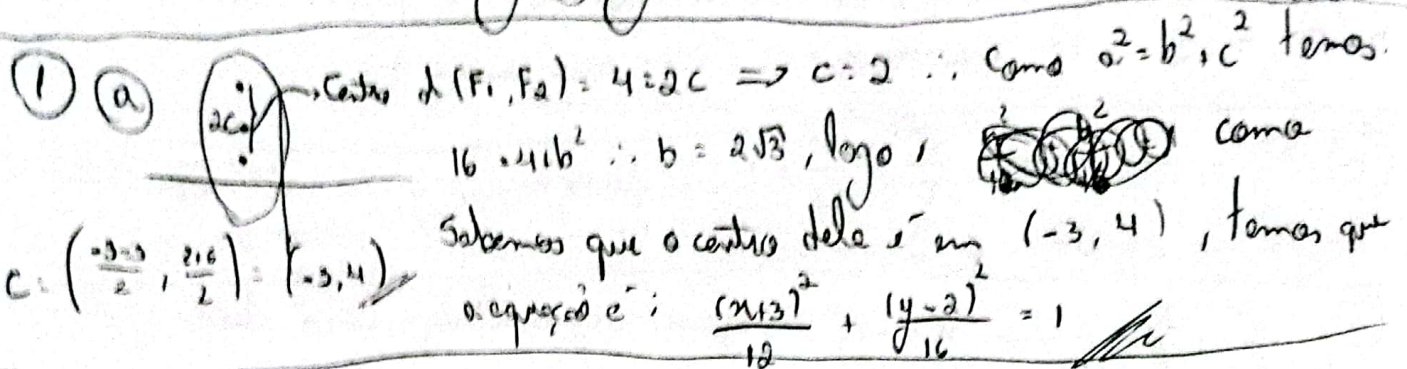 ① ⓐ 2c → Centro d(F₁, F₂) = 4 = 2c => c = 2 ∴ Como a² = b² + c² temos.
16 = 4 + b² ∴ b = 2√3, logo, como
C = (-3-3/2, 2+6/2) = (-3, 4) Sabemos que o centro dela é em (-3, 4), temos que
a equação é: (x+3)²/12 + (y-2)²/16 = 1